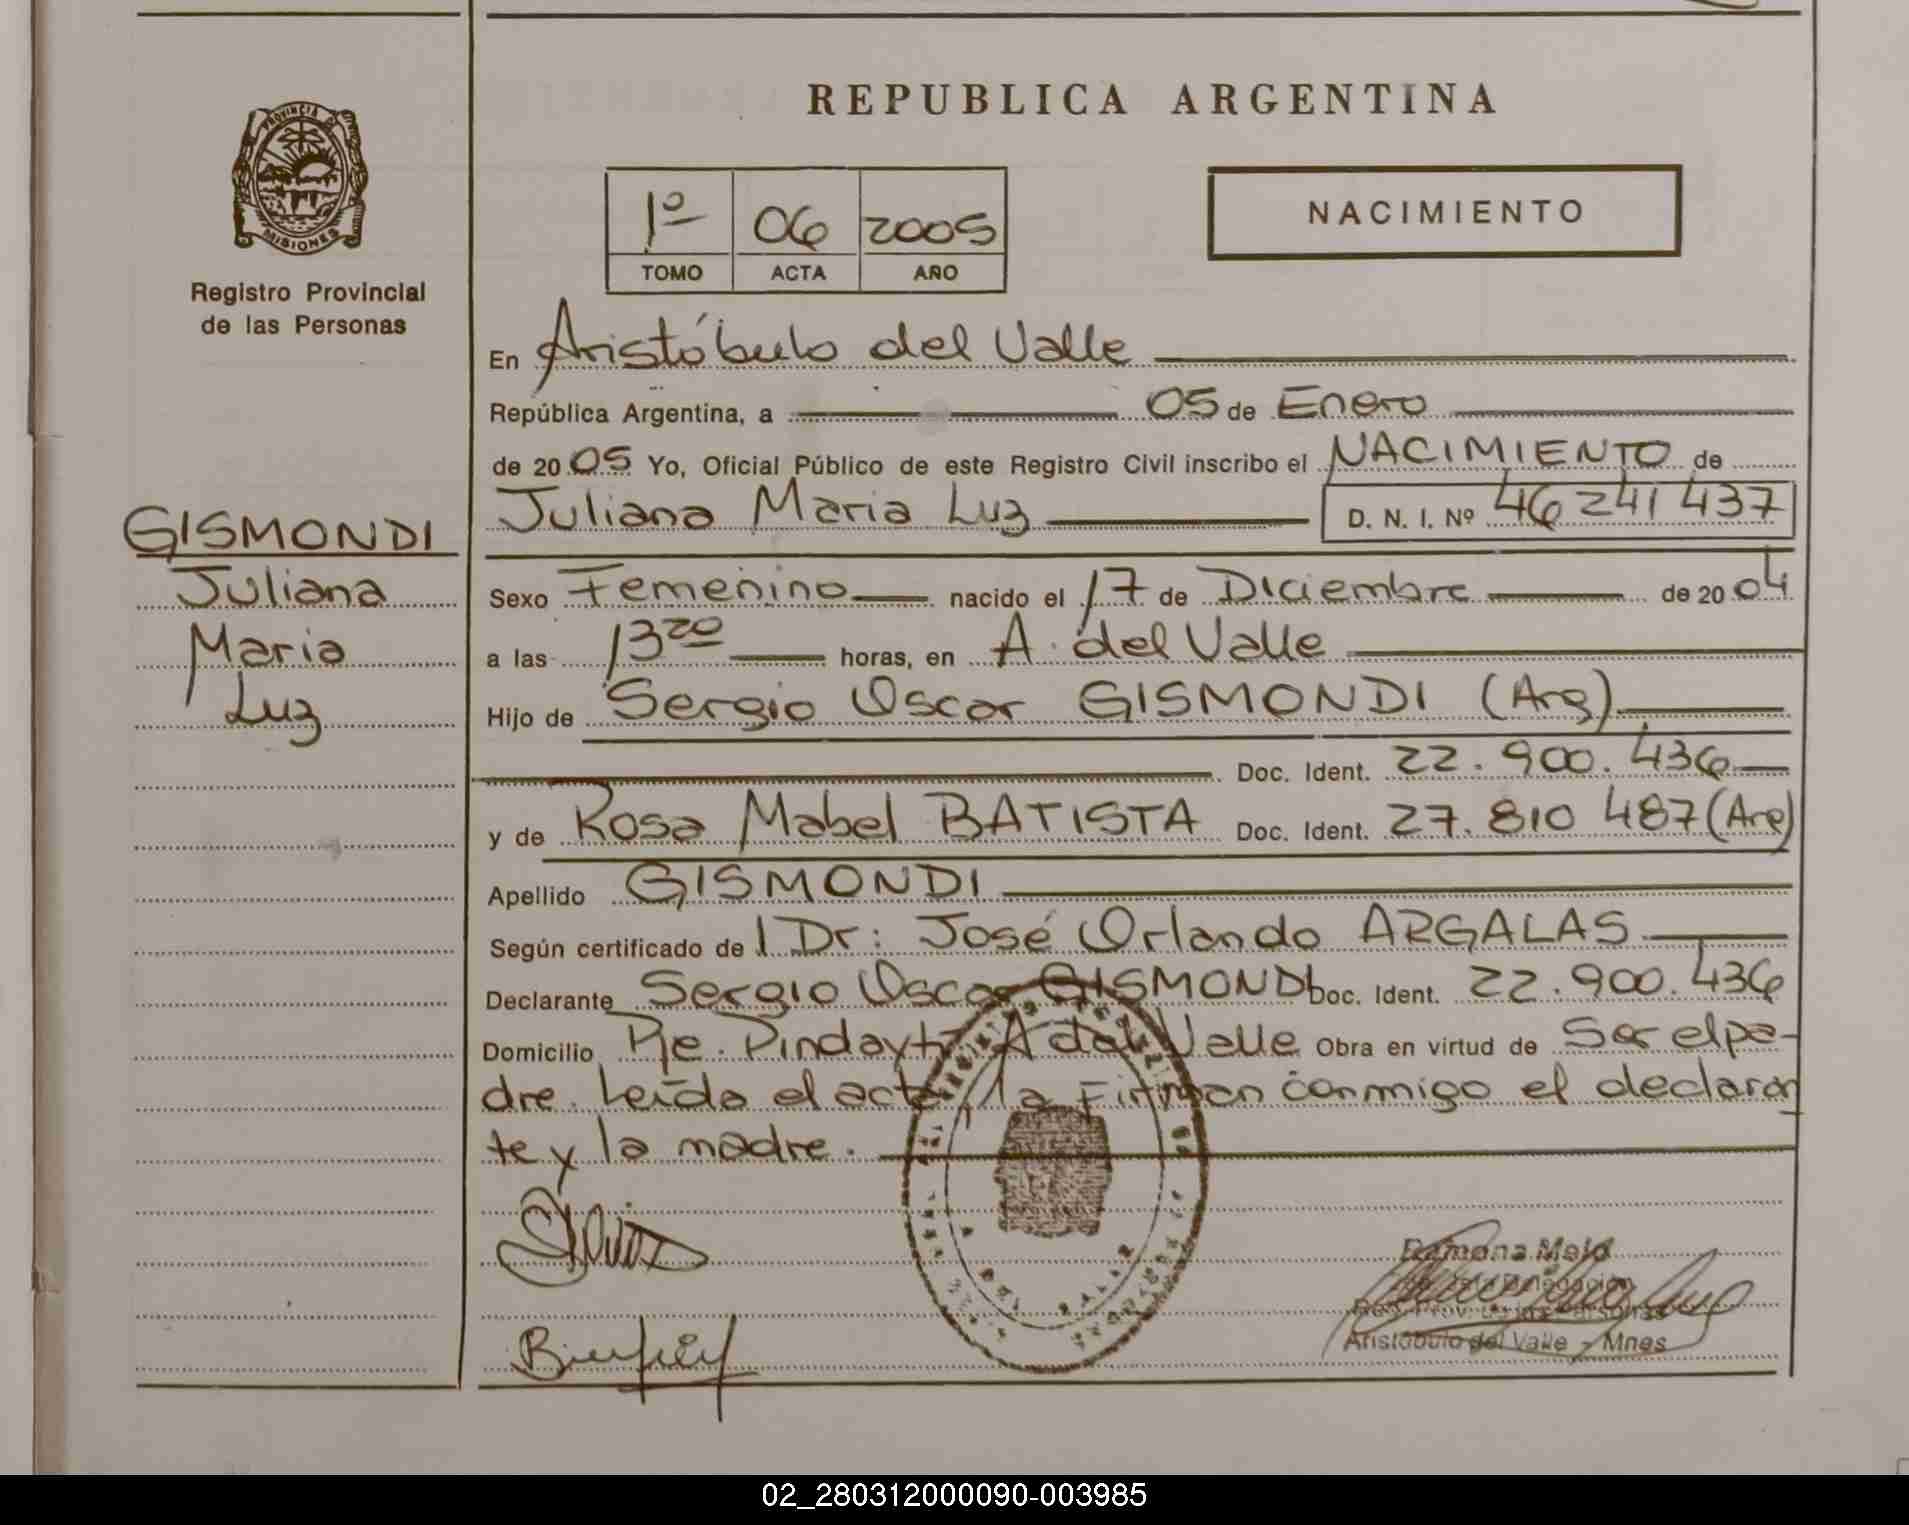 REPUBLICA ARGENTINA
PROVINCIA DE
MISIONES
Registro Provincial
de las Personas
1º 06 2005
TOMO ACTA AÑO
NACIMIENTO
En Aristóbulo del Valle
República Argentina, a 05 de Enero
de 2005 Yo, Oficial Público de este Registro Civil inscribo el NACIMIENTO de
Juliana Maria Luz D. N. I. Nº 46 241 437
GISMONDI
Juliana
Maria
Luz
Sexo Femenino nacido el 17 de Diciembre de 2004
a las 13 20 horas, en A. del Valle
Hijo de Sergio Oscar GISMONDI (Arg)
Doc. Ident. 22.900.436
y de Rosa Mabel BATISTA Doc. Ident. 27.810 487 (Arg)
Apellido GISMONDI
Según certificado de l Dr: José Orlando ARGALAS
Declarante Sergio Oscar GISMONDI Doc. Ident. 22.900.436
Domicilio Pje. Pindayti A del Valle Obra en virtud de Ser el pa-
dre. Leída el acta, la Firman conmigo el declaran
te y la madre.
Ramona Melo
Delegación
Reg. Prov. de las Personas
Aristóbulo del Valle - Mnes
02_280312000090-003985